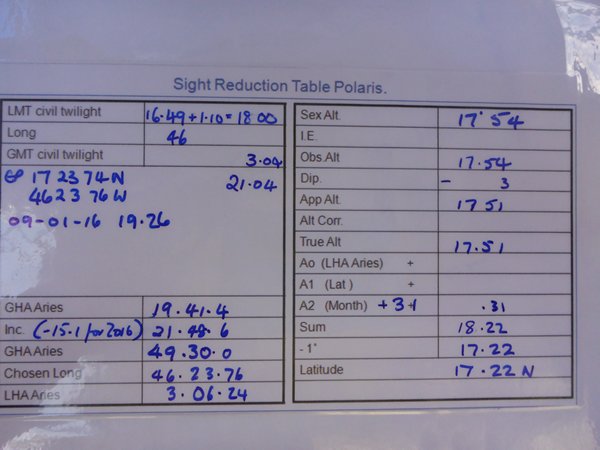 Sight Reduction Table Polaris.
LMT civil twilight 16.49 + 1.10 = 18 00
Long 46
GMT civil twilight 3.04
GP 17 23 74 N 21.04
46 23 76 W
09-01-16 19.26
GHA Aries 19.41.4
Inc. (-15.1 for 2016) 21.48.6
GHA Aries 49.30.0
Chosen Long 46.23.76
LHA Aries 3.06.24
Sex Alt. 17° 54
I.E.
Obs.Alt 17.54
Dip. - 3
App Alt. 17 51
Alt Corr.
True Alt 17.51
Ao (LHA Aries) +
A1 (Lat ) +
A2 (Month) +31 .31
Sum 18.22
- 1° 17.22
Latitude 17.22 N